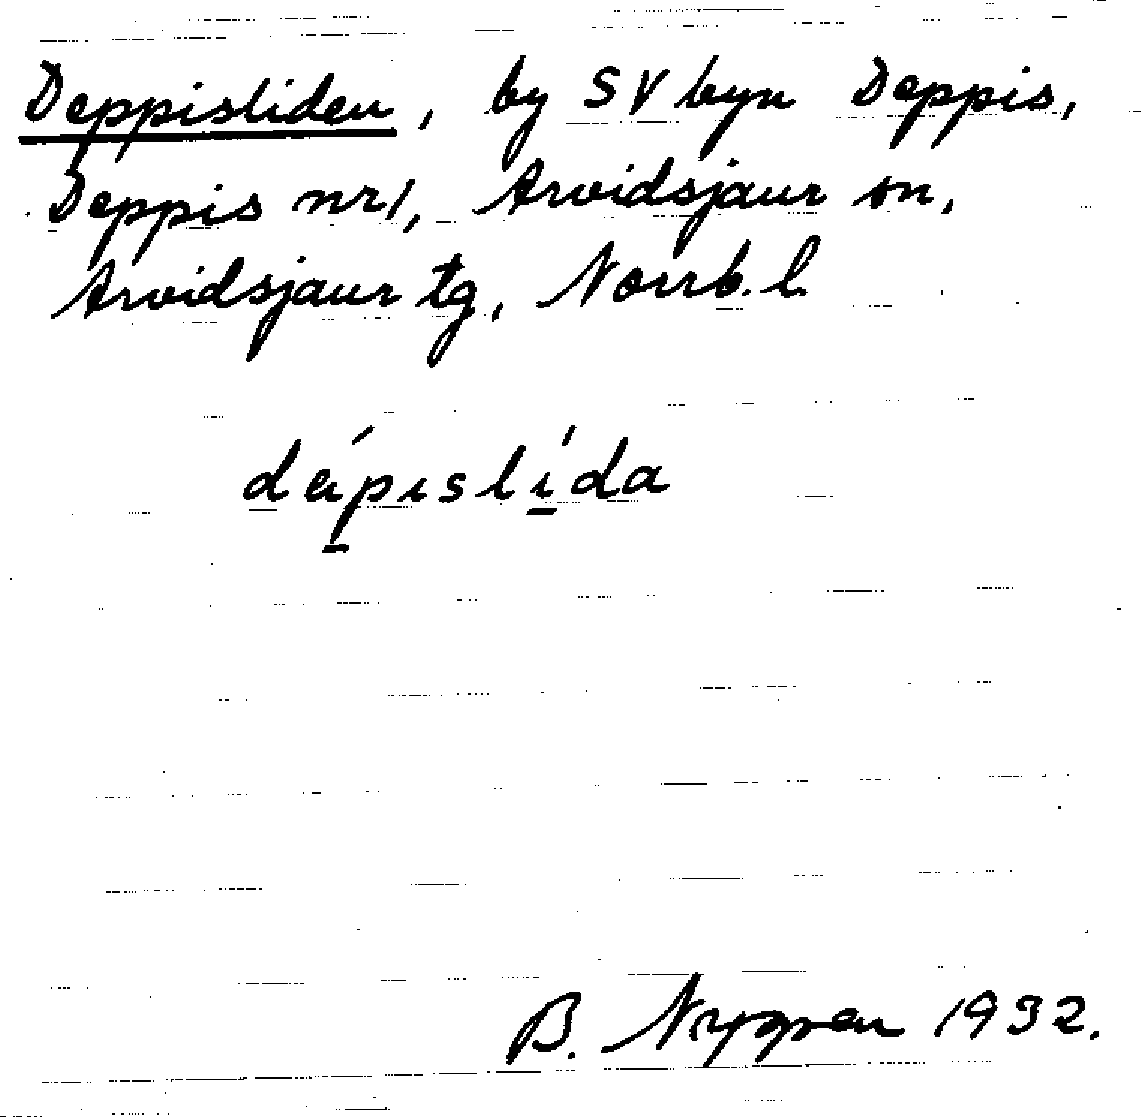 Deppisliden, by SV byn Deppis,
Deppis nr 1, Arvidsjaur sn,
Arvidsjaur tg, Norrb. l.
dép̱islí̱da
B. Nygren 1932.